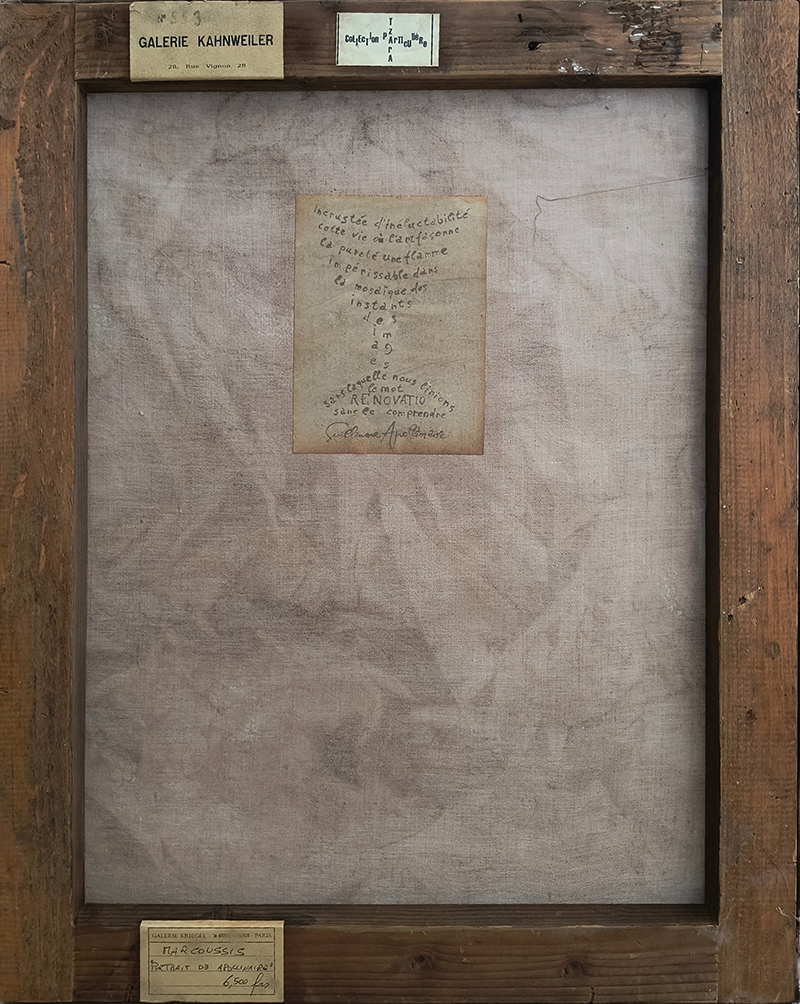 N° 553
GALERIE KAHNWEILER
28, Rue Vignon, 28
TZARA
Collection PArticulièRe
Incrustée d'inéluctabilité
cette vie où l'art façonne
la pureté une flamme
impérissable dans
la mosaïque des
instants
des
im
aG
es
sans laquelle nous lirions
le mot
RENOVATIO
sans le comprendre
Guillaume Apollinaire
GALERIE KRIEGEL PARIS
MARCOUSSIS
"PORTRAIT DE APOLLINAIRE"
6,500 frs